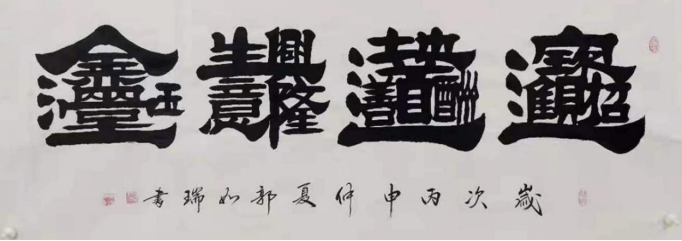 招財進寶 生意興隆 金玉滿堂
歲次丙申仲夏郭如瑞書